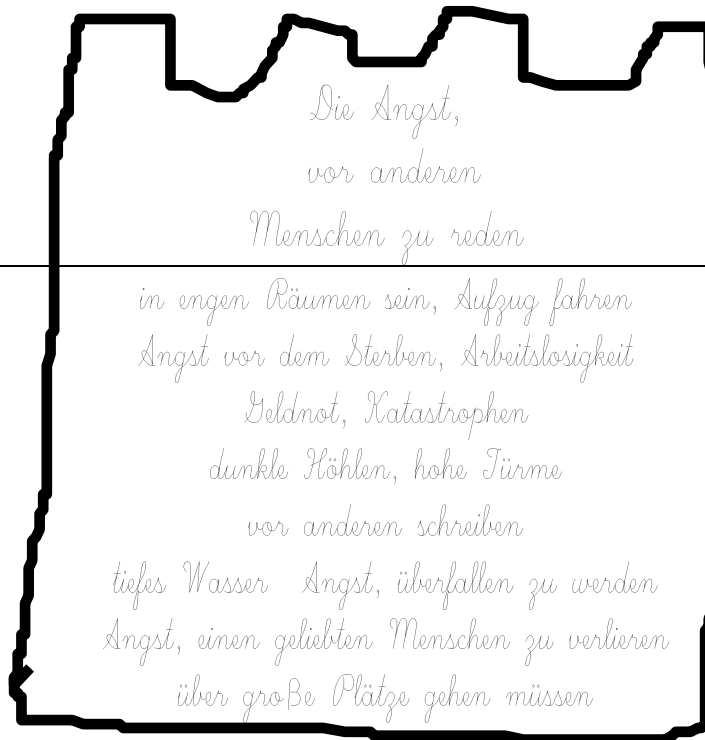 Die Angst,
vor anderen
Menschen zu reden
in engen Räumen sein, Aufzug fahren
Angst vor dem Sterben, Arbeitslosigkeit
Geldnot, Katastrophen
dunkle Höhlen, hohe Türme
vor anderen schreiben
tiefes Wasser Angst, überfallen zu werden
Angst, einen geliebten Menschen zu verlieren
über große Plätze gehen müssen